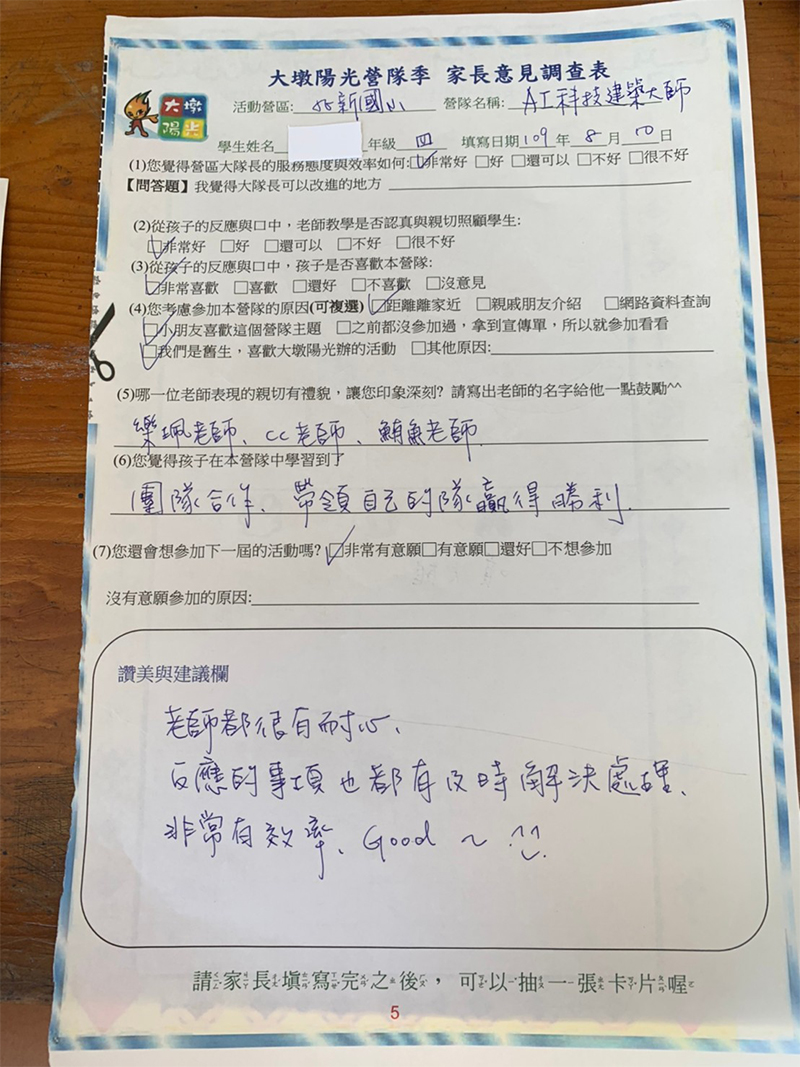 大墩陽光營隊季 家長意見調查表
大墩陽光
活動營區: 北新國小 營隊名稱: AI科技建築大師
學生姓名 年級 四 填寫日期109年8月10日
(1)您覺得營區大隊長的服務態度與效率如何:☑非常好 □好 □還可以 □不好 □很不好
【問答題】我覺得大隊長可以改進的地方
(2)從孩子的反應與口中，老師教學是否認真與親切照顧學生:
☑非常好 □好 □還可以 □不好 □很不好
(3)從孩子的反應與口中，孩子是否喜歡本營隊:
☑非常喜歡 □喜歡 □還好 □不喜歡 □沒意見
(4)您考慮參加本營隊的原因(可複選) ☑距離離家近 □親戚朋友介紹 □網路資料查詢
☑小朋友喜歡這個營隊主題 □之前都沒參加過，拿到宣傳單，所以就參加看看
☑我們是舊生，喜歡大墩陽光辦的活動 □其他原因:
(5)哪一位老師表現的親切有禮貌，讓您印象深刻? 請寫出老師的名字給他一點鼓勵^^
樂珮老師、cc老師、鮪魚老師
(6)您覺得孩子在本營隊中學習到了
團隊合作、帶領自己的隊贏得勝利.
(7)您還會想參加下一屆的活動嗎? ☑非常有意願□有意願□還好□不想參加
沒有意願參加的原因:
讚美與建議欄
老師都很有耐心、
反應的事項也都有及時解決處理、
非常有效率、Good ~ ^^
請家長填寫完之後，可以抽一張卡片喔
5